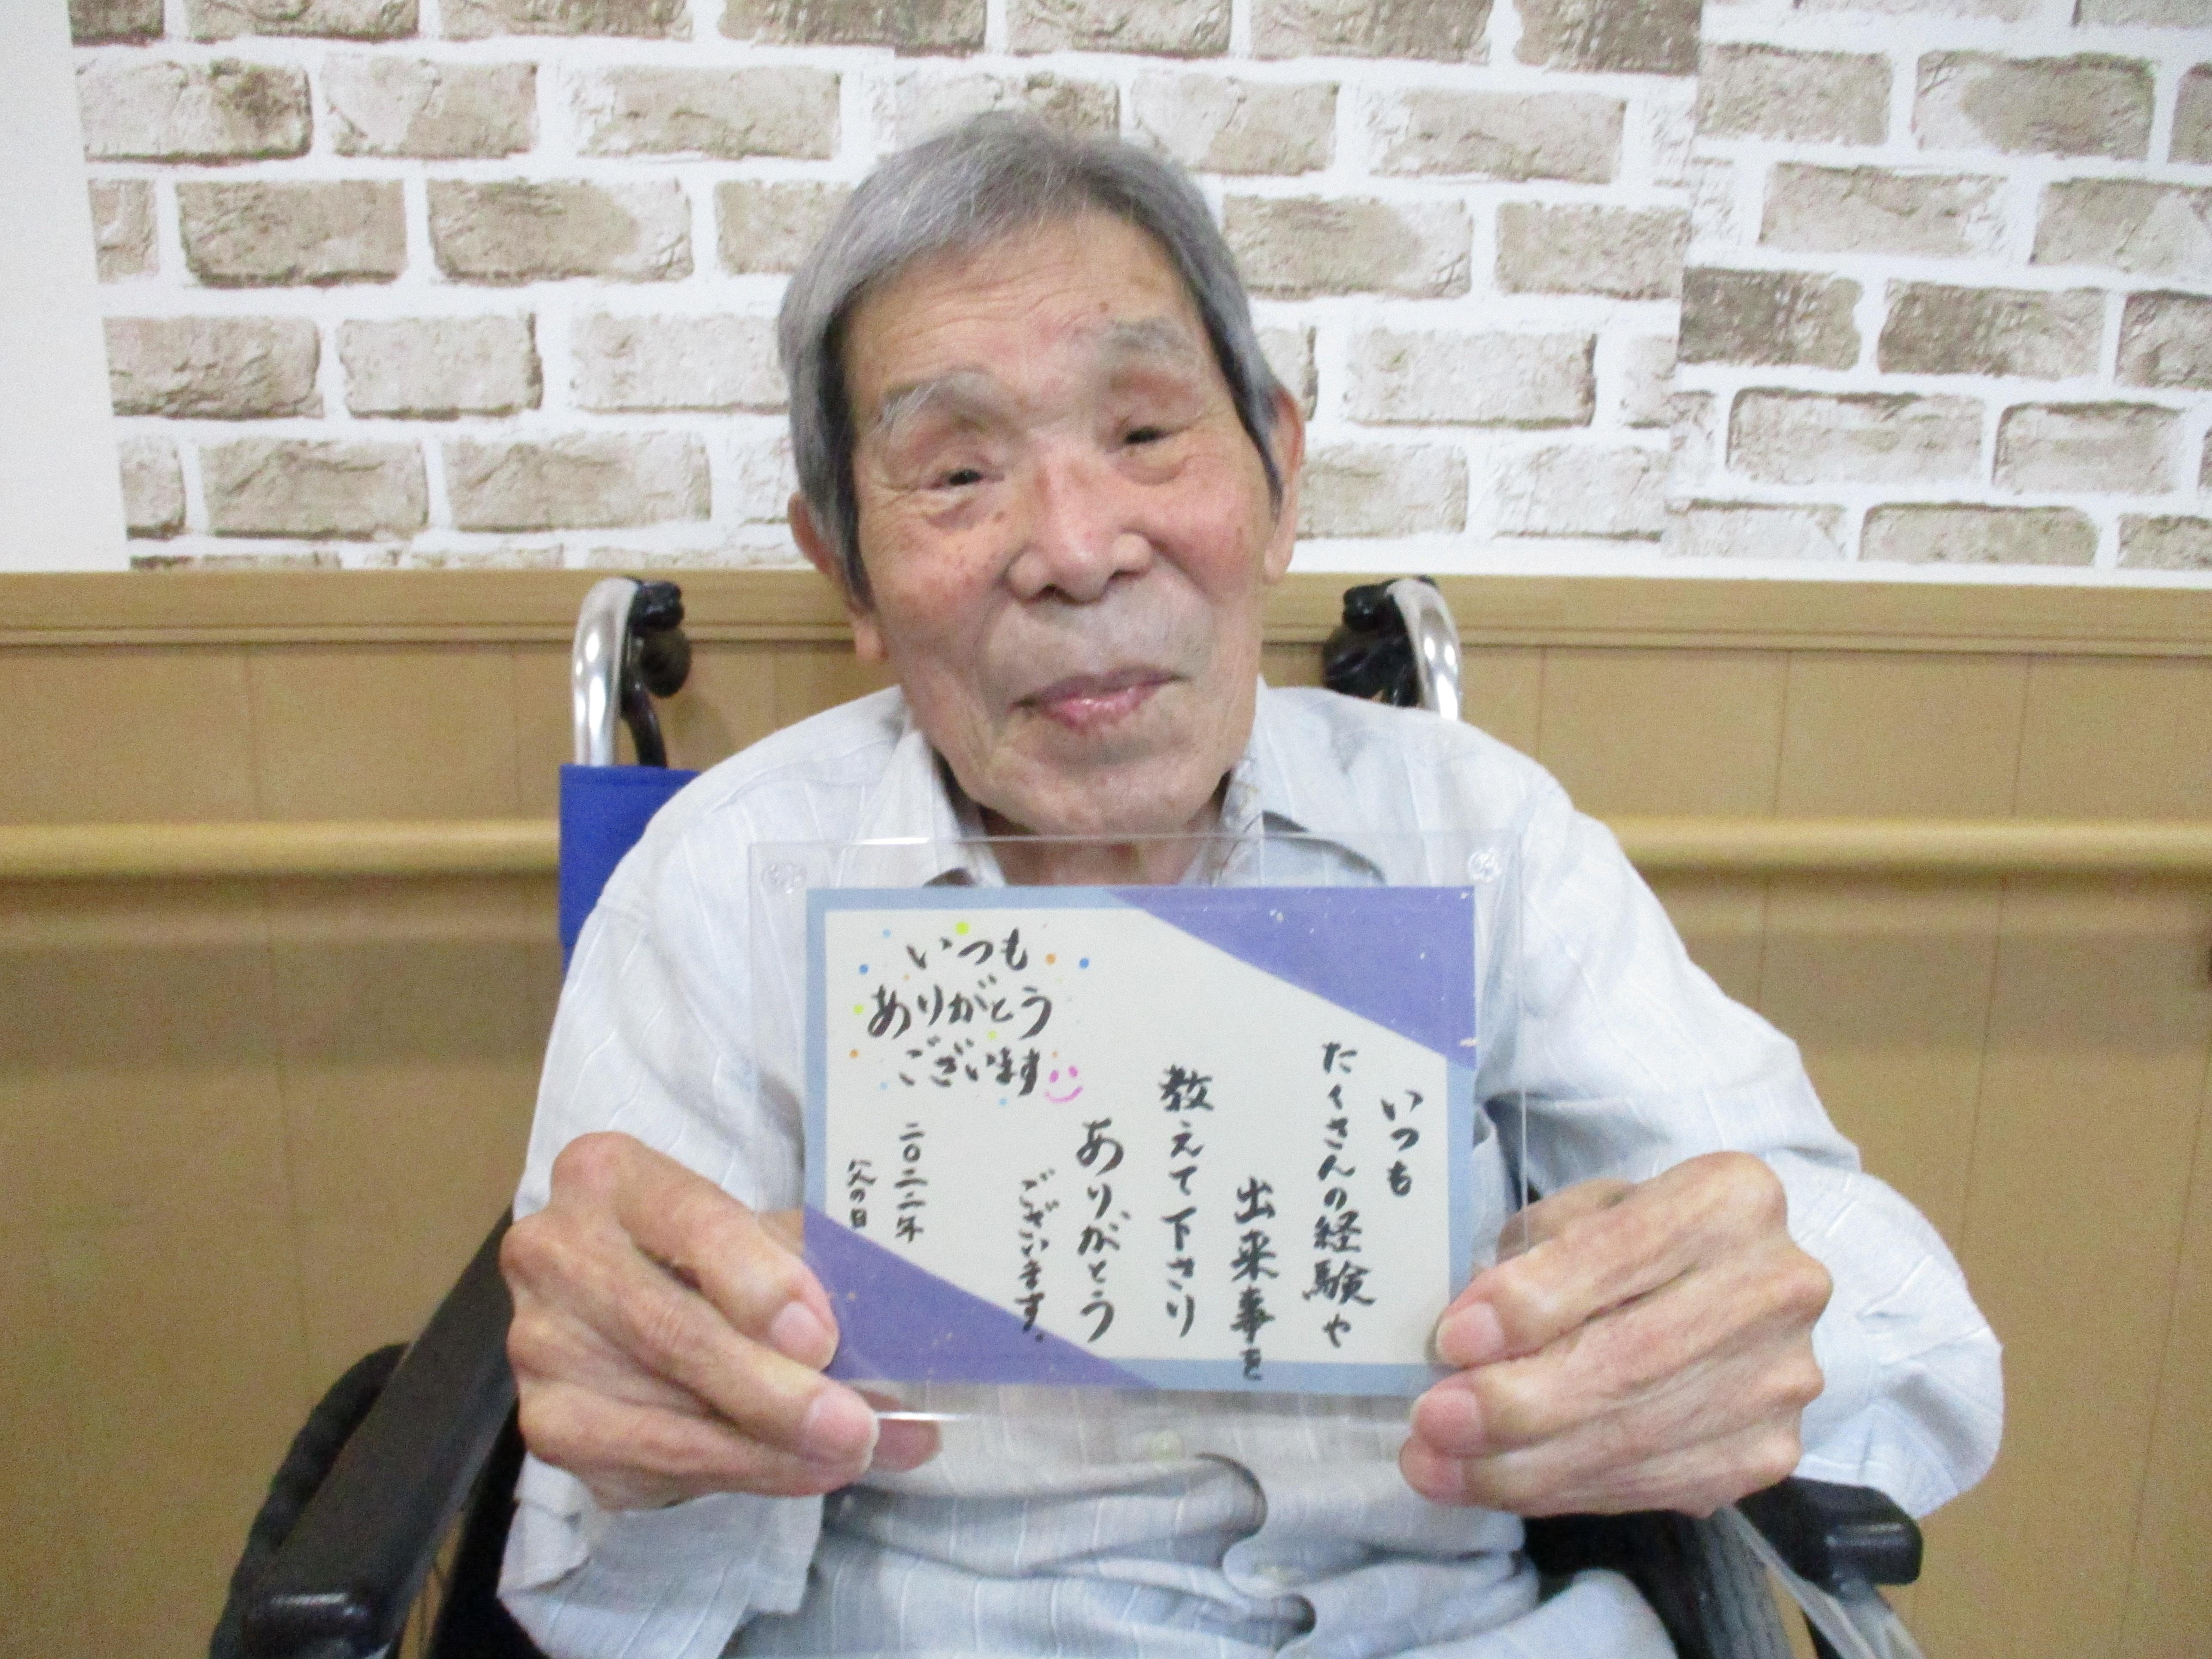 いつも
ありがとう
ございます
いつも
たくさんの経験や
出来事を
教えて下さり
ありがとう
ございます。
二〇二二年
父の日